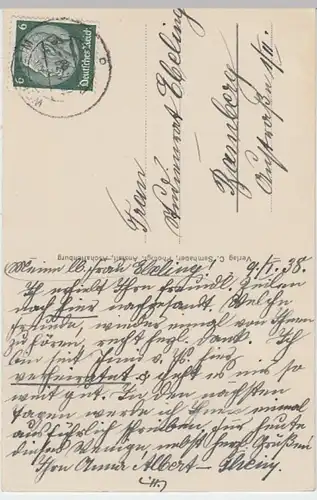 Deutsches Reich
6 6
Frau
Studienrat Ebeling
Bamberg
Austraße 1/II.
Verlag C. Samhaber, Photogr. Anstalt, Aschaffenburg
Meine lb. Frau Ebeling! 9./V. 38.
Ich erhielt Ihre freundl. Zeilen
nach hier nachgesandt. Welche
Freude, wieder einmal von Ihnen
zu hören, recht herzl. Dank. Ich
bin seit Juni v. Js. hier
verheiratet u. geht es mir so
weit gut. In den nächsten
Tagen werde ich Ihnen einmal
ausführlich schreiben, für heute
dieses Wenige, nebst herzl. Grüßen
Ihre Anna Albert-